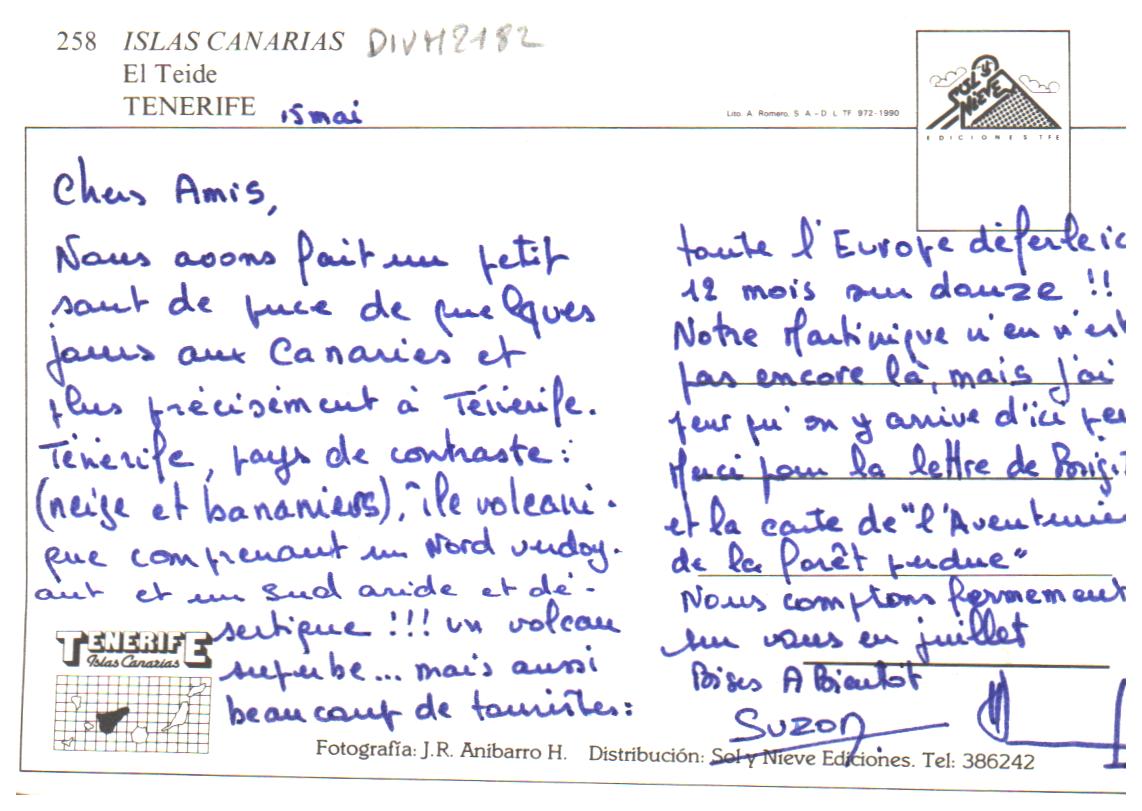 258 ISLAS CANARIAS DIVM2182
El Teide
TENERIFE 15 mai
Lito. A. Romero, S. A. - D. L. TF. 972-1990
SOL Y
NIEVE
EDICIONES TFE
Chers Amis,
Nous avons fait un petit
saut de puce de quelques
jours aux Canaries et
plus précisément à Ténérife.
Ténérife, pays de contraste :
(neige et bananiers), île volcani-
que comprenant un Nord verdoy-
ant et un Sud aride et dé-
sertique !!! un volcan
superbe... mais aussi
beaucoup de touristes :
toute l'Europe déferle ic
12 mois sur douze !!
Notre Martinique n'en n'est
pas encore là, mais j'ai
peur qu'on y arrive d'ici peu
Merci pour la lettre de Brigit
et la carte de "l'Aventurie
de la forêt perdue"
Nous comptons fermement
sur vous en juillet
Bises A Bientôt
SUZON
TENERIFE
Islas Canarias
Fotografía: J.R. Anibarro H. Distribución: Sol y Nieve Ediciones. Tel: 386242